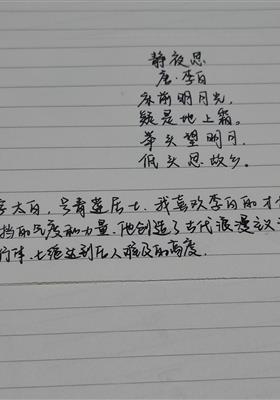 静夜思
唐·李白
床前明月光，
疑是地上霜。
举头望明月，
低头思故乡。
字太白，号青莲居士，我喜欢李白的才
挡的气度和力量。他创造了古代浪漫主义
行体、七绝达到后人难及的高度。